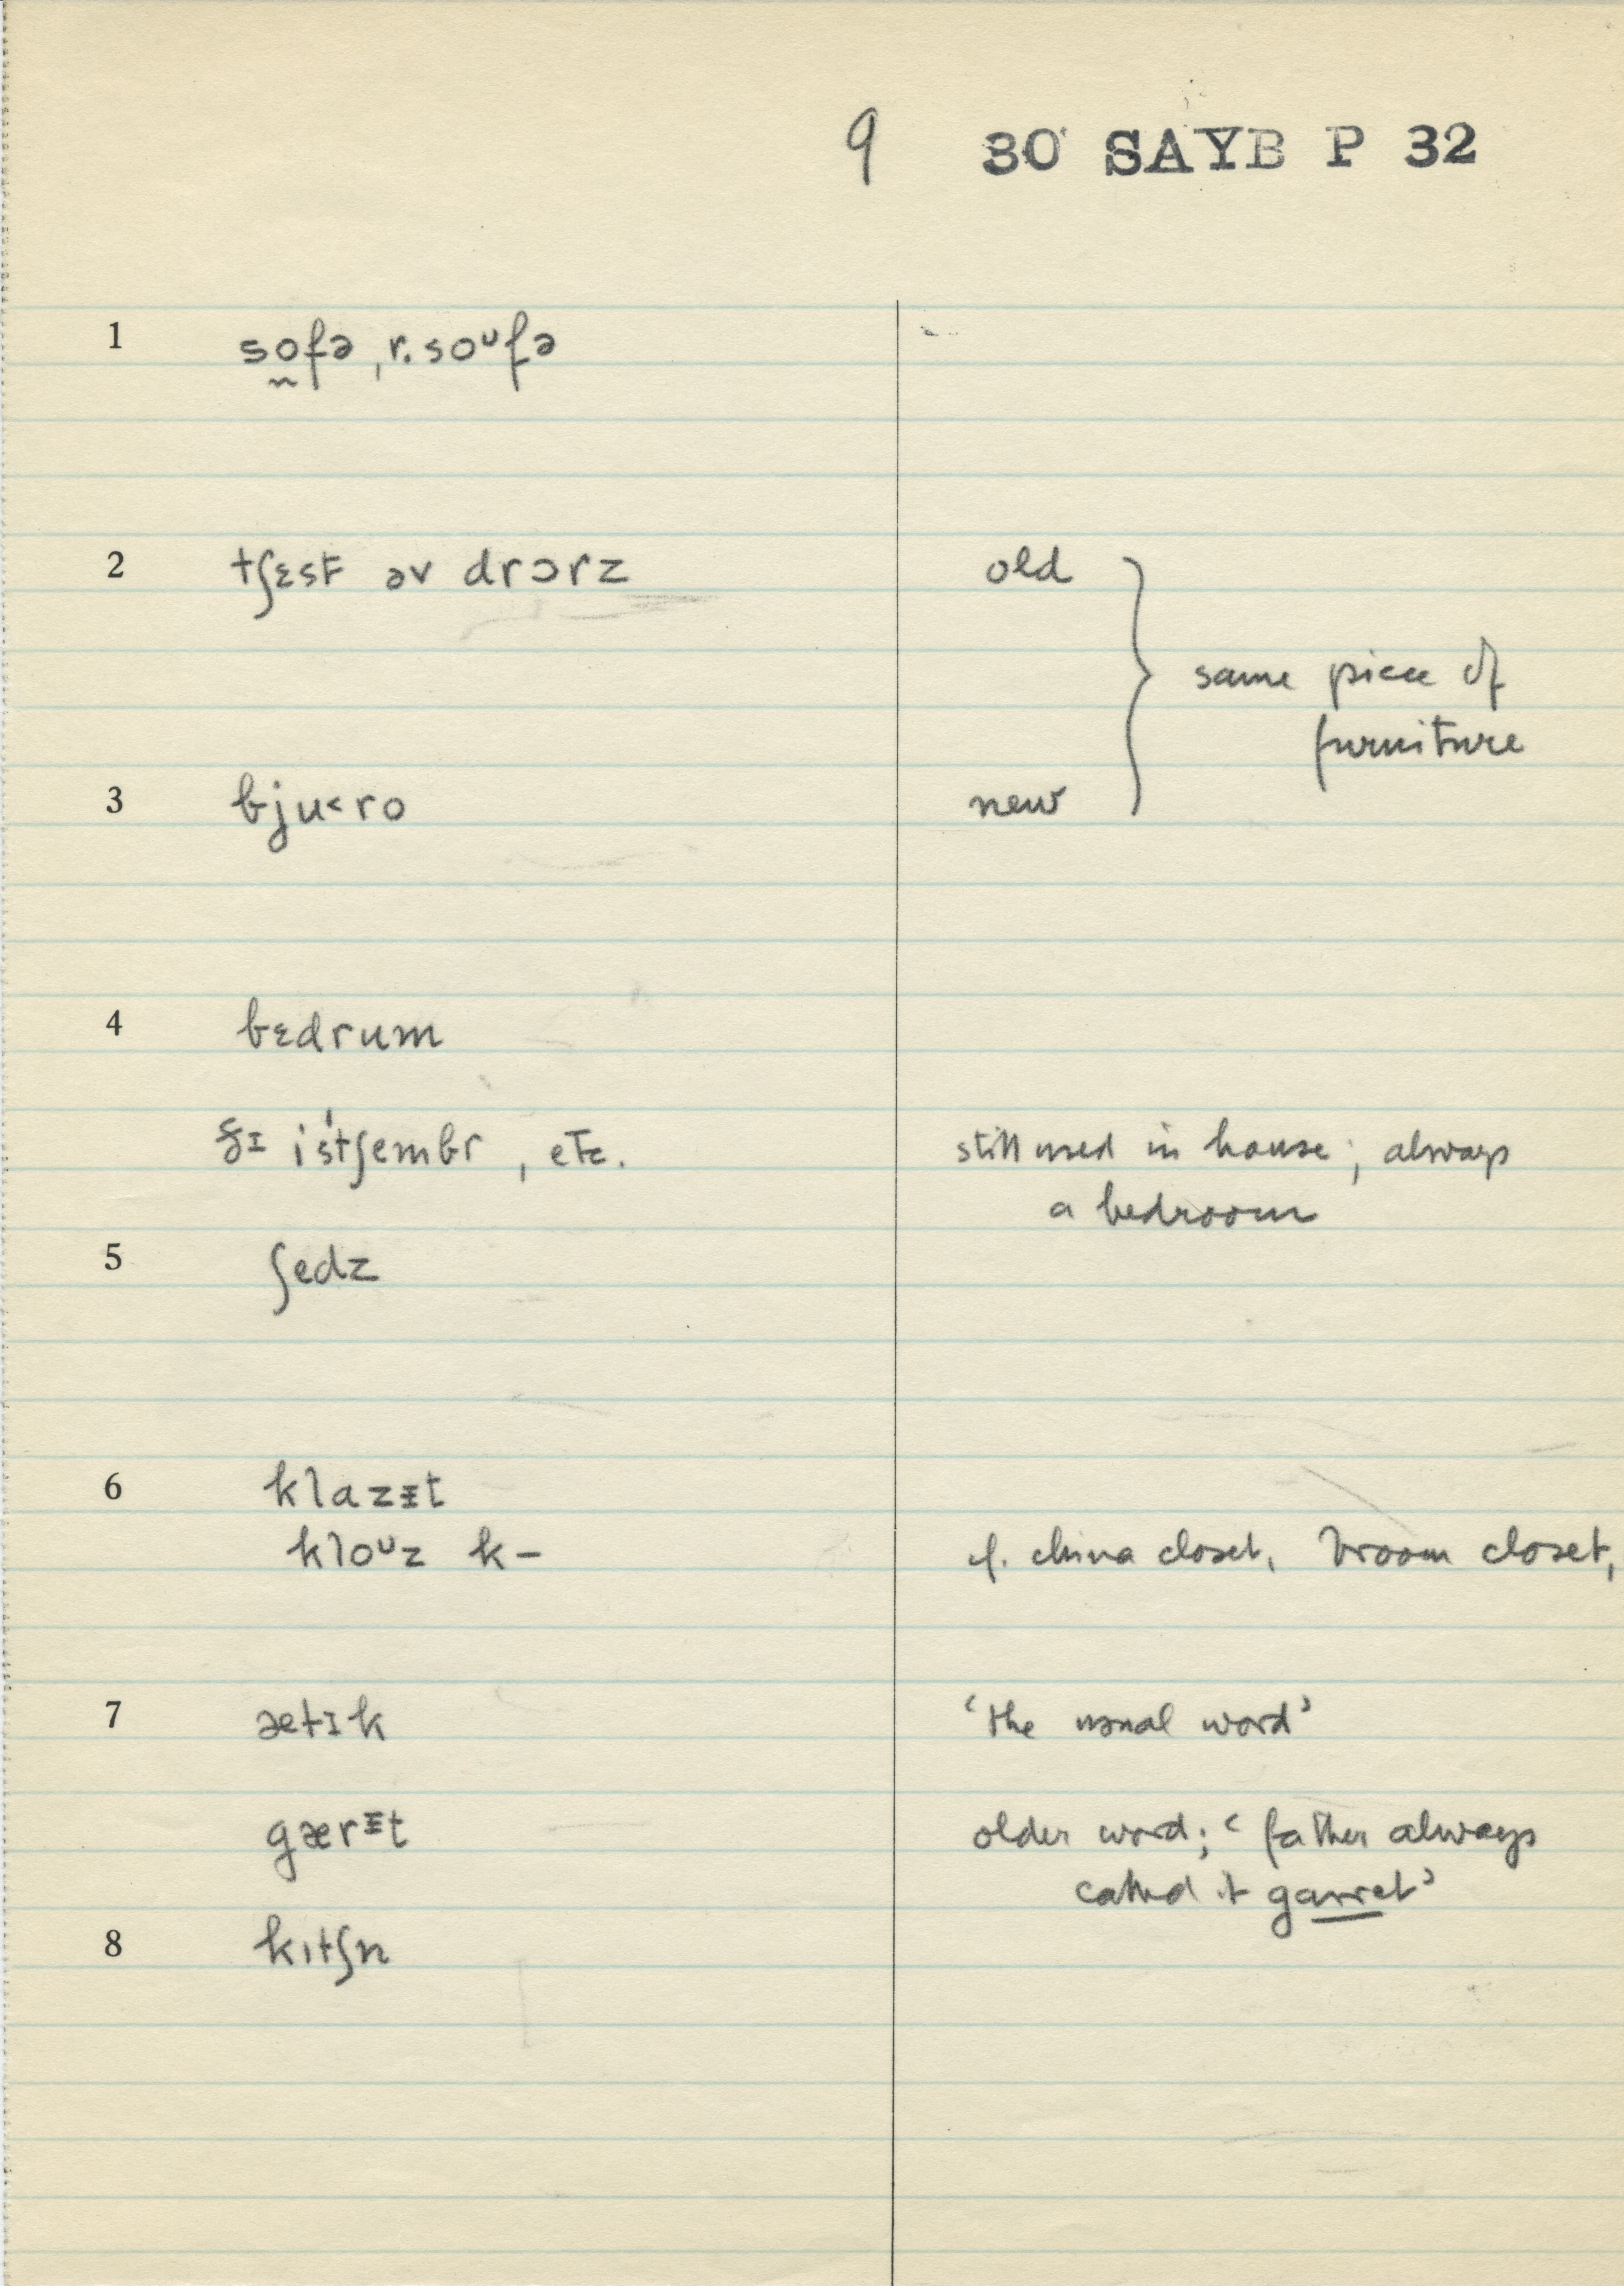 9 30 SAYB P 32
1 so̰fə, r. soᶷfə
2 tʃɛst əv drɔrz old
same piece of
furniture
3 bju˂ro new
4 bɛdrum
ðɪ istˈʃembr, etc. still used in house; always
a bedroom
5 ʃedz
6 klazɪ̵t
kloᶷz k– cf. china closet, broom closet,
7 ætɪk ‘the usual word’
gærɪ̵t older word; ‘father always
called it garret’
8 kɪtʃn